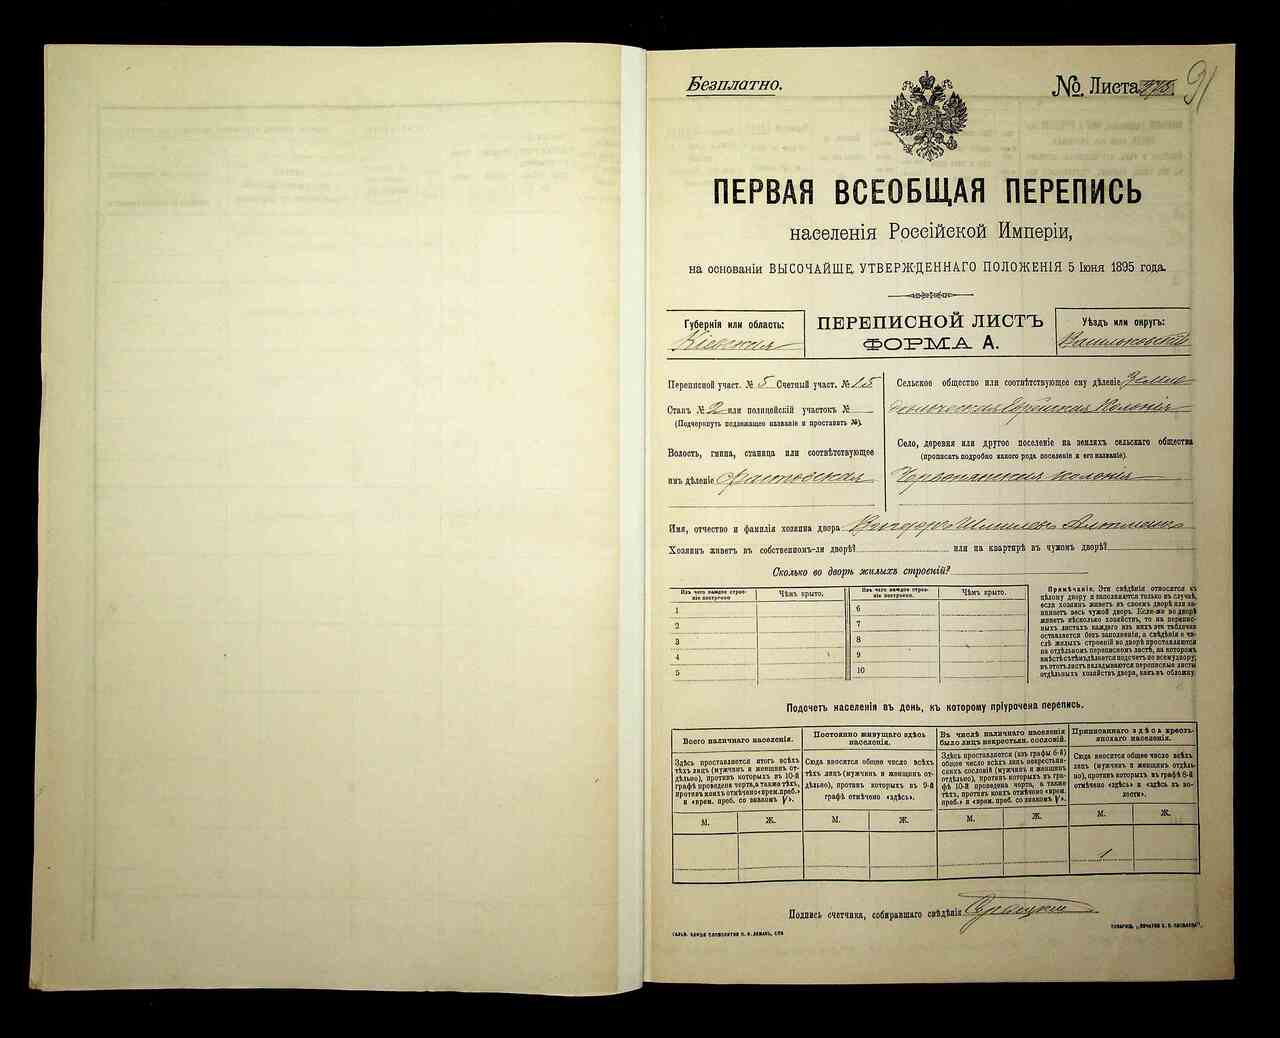 Безплатно.
№ Листа
91
ПЕРВАЯ ВСЕОБЩАЯ ПЕРЕПИСЬ
населенія Россійской Имперіи,
на основаніи ВЫСОЧАЙШЕ УТВЕРЖДЕННАГО ПОЛОЖЕНІЯ 5 Іюня 1895 года.
Губернія или область:
Кіевская
ПЕРЕПИСНОЙ ЛИСТЪ
ФОРМА А.
Уѣздъ или округъ:
Васильковскій
Переписной участ. № 5 Счетный участ. № 15
Станъ № 2 или полицейскій участокъ №
(Подчеркнуть подлежащее названіе и проставить №).
Волость, гмина, станица или соотвѣтствующее
имъ дѣленіе Фастовская
Сельское общество или соотвѣтствующее ему дѣленіе Земле
дѣльческая Еврейская Колонія
Село, деревня или другое поселеніе на земляхъ сельскаго общества
(прописать подробно какого рода поселеніе и его названіе).
Червонянская колонія
Имя, отчество и фамилія хозяина двора Шмилевъ Альтманъ
Хозяинъ живетъ въ собственномъ-ли дворѣ? или на квартирѣ въ чужомъ дворѣ?
Сколько во дворѣ жилыхъ строеній?
Изъ чего каждое строеніе построено Чѣмъ крыто. Изъ чего каждое строеніе построено. Чѣмъ крыто.
1 6
2 7
3 8
4 9
5 10
Примѣчаніе. Эти свѣдѣнія относятся къ
цѣлому двору и заполняются только въ случаѣ,
если хозяинъ живетъ въ своемъ дворѣ или занимаетъ
весь чужой дворъ. Если-же во дворѣ
живетъ нѣсколько хозяйствъ, то на переписныхъ
листахъ каждаго изъ нихъ эта табличка
оставляется безъ заполненія, а свѣдѣнія о числѣ
жилыхъ строеній во дворѣ проставляются
на отдѣльномъ переписномъ листѣ, на которомъ
вмѣстѣ съ тѣмъ дѣлается подсчетъ по всему двору;
въ этотъ листъ вкладываются переписные листы
отдѣльныхъ хозяйствъ двора, какъ въ обложку.
Подсчетъ населенія въ день, къ которому пріурочена перепись.
Всего наличнаго населенія.
Здѣсь проставляется итогъ всѣхъ
тѣхъ лицъ (мужчинъ и женщинъ отдѣльно),
противъ которыхъ въ 10-й
графѣ проведена черта, а также тѣхъ,
противъ коихъ отмѣчено «врем. преб.»
и «врем. преб. со знакомъ V».
Постоянно живущаго здѣсь населенія.
Сюда вносится общее число всѣхъ
тѣхъ лицъ (мужчинъ и женщинъ отдѣльно),
противъ которыхъ въ 9-й
графѣ отмѣчено «здѣсь».
Въ числѣ наличнаго населенія
было лицъ некрестьян. сословій.
Здѣсь проставляется (изъ графы 6-й)
общее число всѣхъ лицъ некрестьянскихъ
сословій (мужчинъ и женщинъ
отдѣльно), противъ которыхъ въ графѣ
10-й проведена черта, а также
тѣхъ, противъ коихъ отмѣчено «врем.
преб.» и «врем. преб. со знакомъ V».
Приписаннаго здѣсь крестьянскаго населенія.
Сюда вносится общее число всѣхъ
лицъ (мужчинъ и женщинъ отдѣльно),
противъ которыхъ въ графѣ 8-й
отмѣчено «здѣсь» и «здѣсь въ волости».
М. Ж. М. Ж. М. Ж. М. Ж.
1
Подпись счетчика, собиравшаго свѣдѣнія